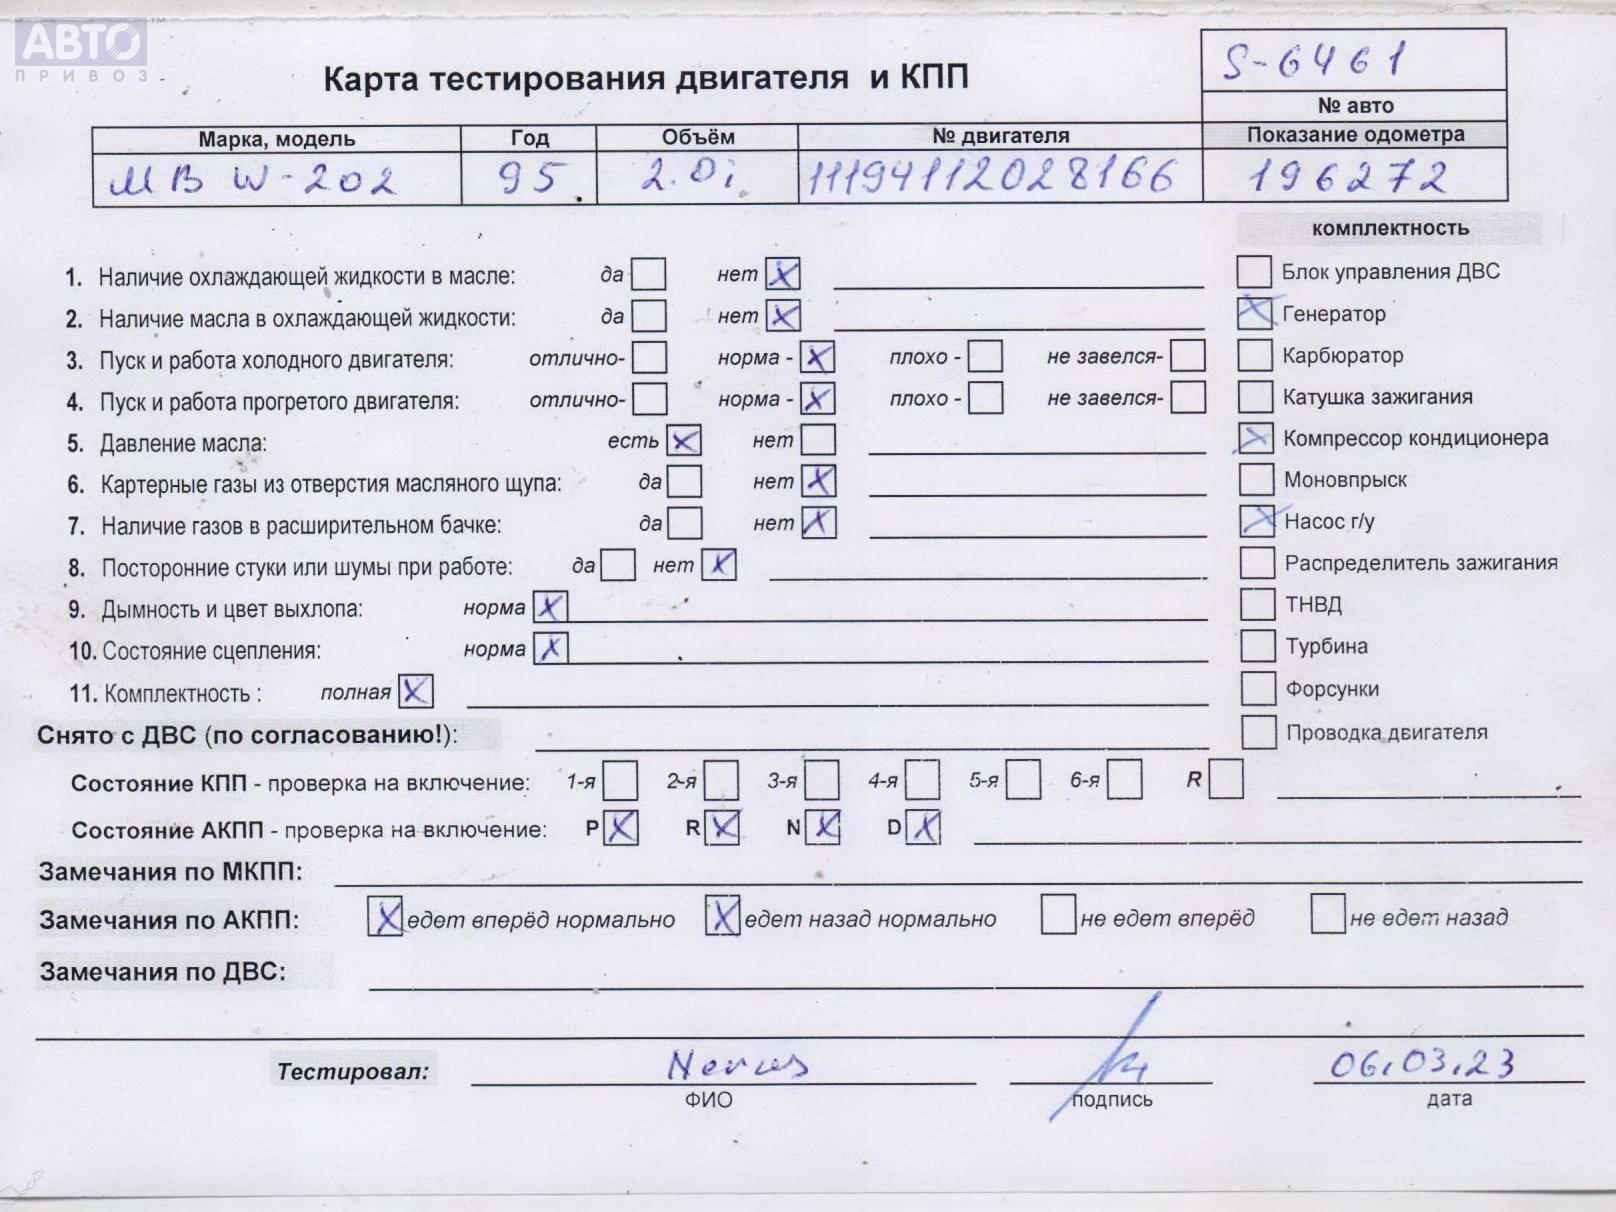 АВТО
ПРИВОЗ
TM
S-6461
Карта тестирования двигателя и КПП
№ авто
Марка, модель Год Объём № двигателя Показание одометра
MB W-202 95. 2.0i 11194112028166 196272
комплектность
1. Наличие охлаждающей жидкости в масле: да нет X
Блок управления ДВС
2. Наличие масла в охлаждающей жидкости: да нет X
X Генератор
3. Пуск и работа холодного двигателя: отлично- норма - X плохо - не завелся-
Карбюратор
4. Пуск и работа прогретого двигателя: отлично- норма - X плохо - не завелся-
Катушка зажигания
5. Давление масла: есть X нет
X Компрессор кондиционера
6. Картерные газы из отверстия масляного щупа: да нет X
Моновпрыск
7. Наличие газов в расширительном бачке: да нет X
X Насос г/у
8. Посторонние стуки или шумы при работе: да нет X
Распределитель зажигания
9. Дымность и цвет выхлопа: норма X
ТНВД
10. Состояние сцепления: норма X
Турбина
11. Комплектность : полная X
Форсунки
Снято с ДВС (по согласованию!):
Проводка двигателя
Состояние КПП - проверка на включение: 1-я 2-я 3-я 4-я 5-я 6-я R
Состояние АКПП - проверка на включение: P X R X N X D X
Замечания по МКПП:
Замечания по АКПП: X едет вперёд нормально X едет назад нормально не едет вперёд не едет назад
Замечания по ДВС:
Тестировал: 06.03.23
ФИО подпись дата